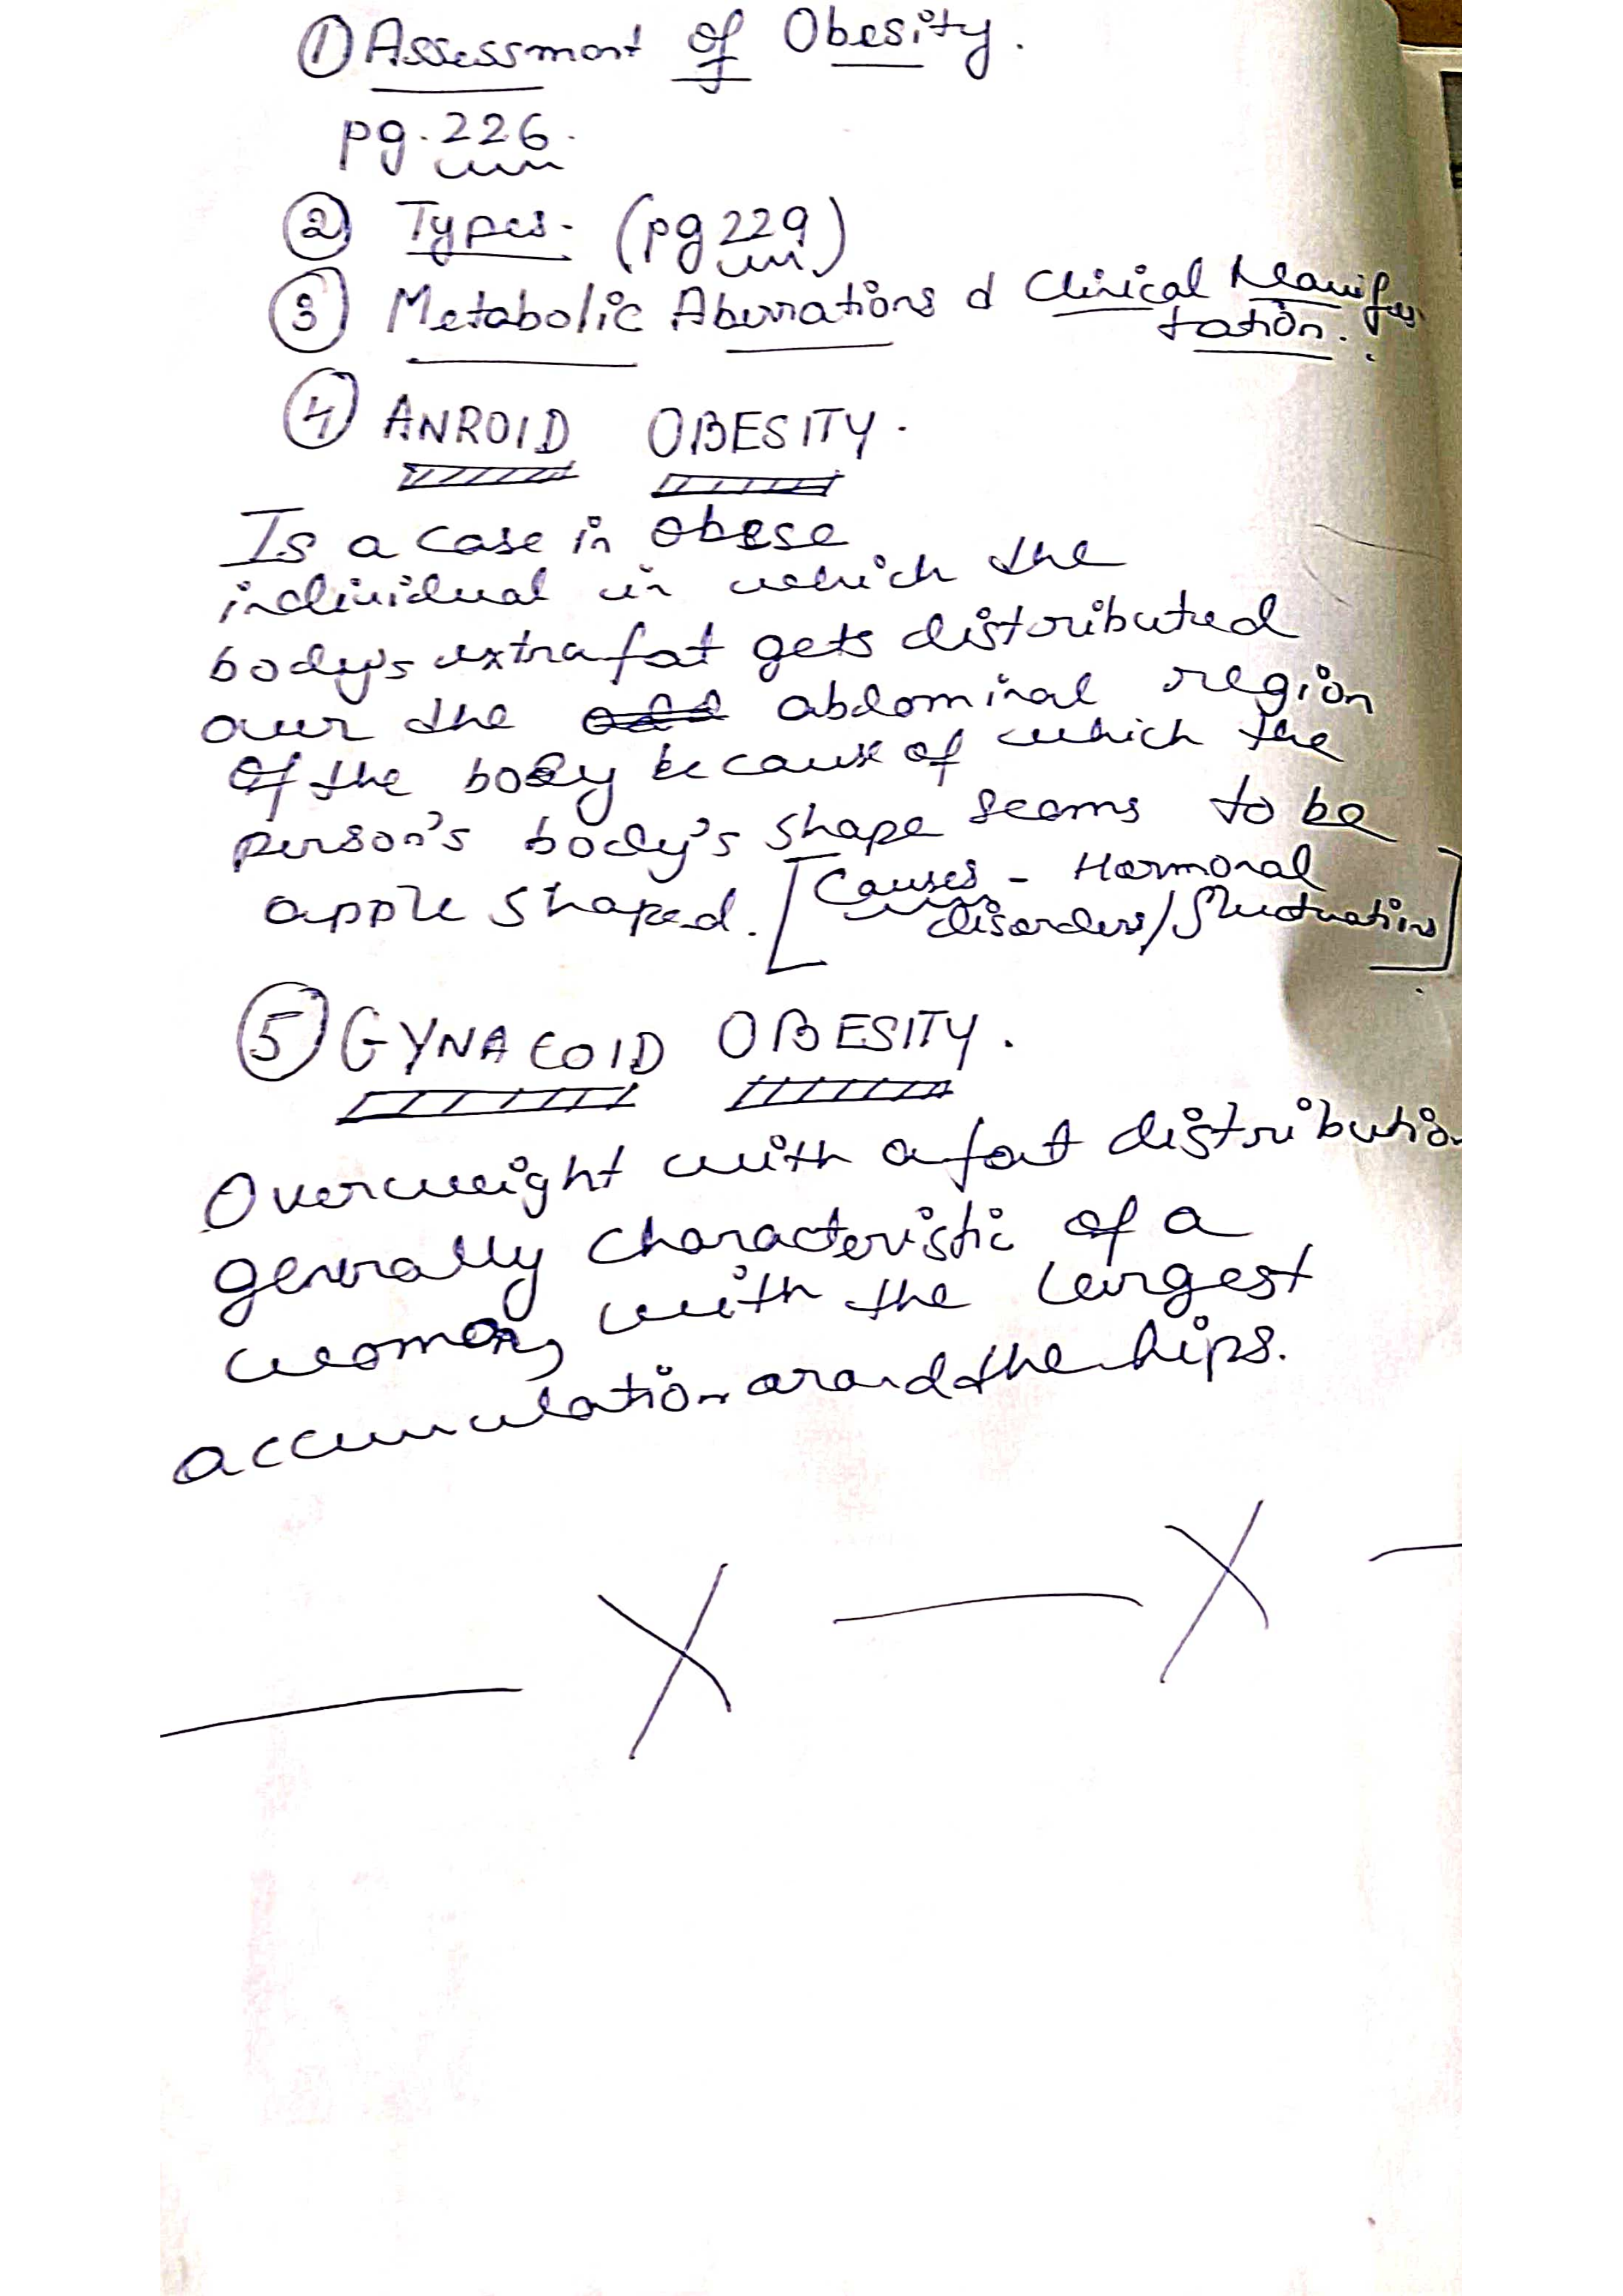 ① Assessment of Obesity.
pg. 226.
② Types. (pg 229)
③ Metabolic Aberrations & Clinical Manifes
tation.
④ ANROID OBESITY.
Is a case in obese
individual in which the
body's extra fat gets distributed
over the abdominal region
of the body because of which the
person's body's shape seems to be
apple shaped. [Causes - Hormonal
disorders/fluctuations]
⑤ GYNACOID OBESITY.
Overweight with a fat distributio
generally characteristic of a
woman, with the largest
accumulation around the hips.
X X